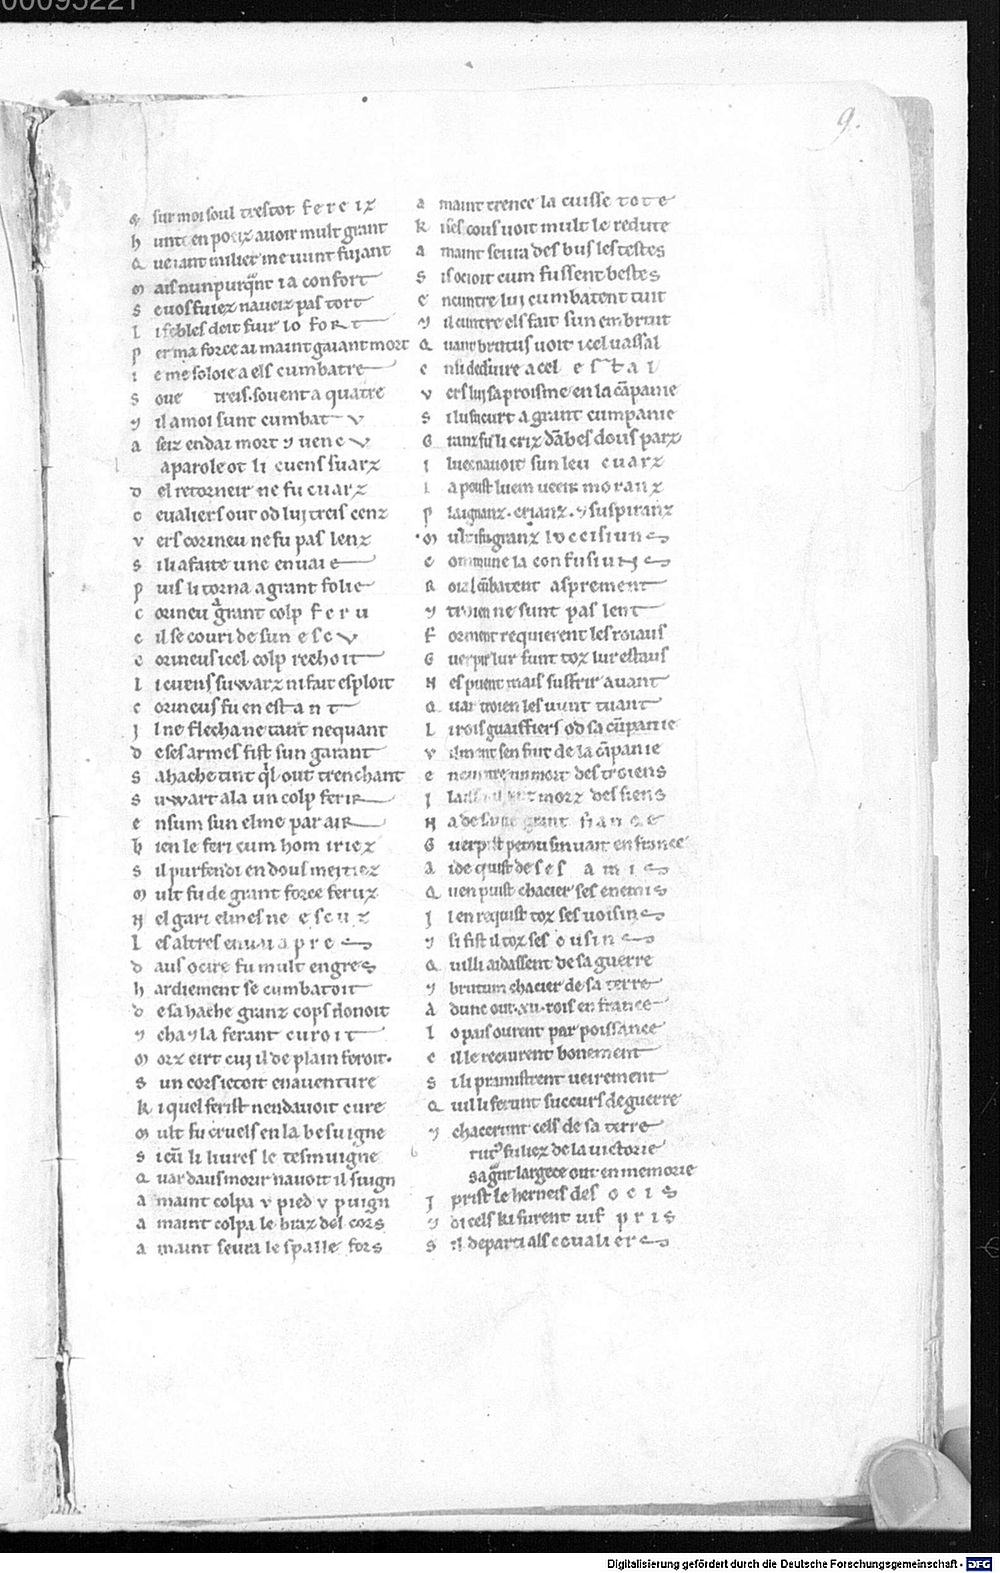 00095221
9.
& sur moi soul trestot fereiz
h unte en poeiz auoir mult grant
Q ue iant milier me uunt fuiant
m ais nunpurq̃nt i a confort
s e uos fuiez naueiz pas tort
l i febles deit fuir lo fort
p er ma force ai maint gaiant mort
i e me soloie a els cumbatre
s oue treis. souent a quatre
⁊ il a moi sunt cumbatv
a seiz en dai mort ⁊ uencv
l a parole ot li cuens suarz
d el retorneir ne fu cuarz
c eualiers out od lui treis cenz
v ers corineu ne fu pas lenz
s i li a faite une enuaie
p uis li torna a grant folie
c orineu g̃rant colp feru
c il se couri de sun escv
c orineus icel colp rechoit
l i cuens suwarz ni fait esploit
c orineus fu en estant
J l ne flecha ne tant ne quant
d e ses armes fist sun garant
s a hache tint q̃l out trenchant
s uwart ala un colp ferir
e nsum sun elme par air
b ien le feri cum hom iriez
s il purfendi en dous meitiez
m ult fu de grant force feruz
N el gari elmes ne escuz
L es altres enuaapres
d aus ocire fu mult engres
h ardiement se cumbatoit
d e sa hache granz cops donoit
⁊ cha ⁊ la ferant curoit
m orz eirt cui il de plain feroit.
s un cors ietoit en auenture
k i quel ferist nen dauoit cure
m ult fu cruels en la besuigne
s i cũ li liures le tesmuigne
Q uar daus morir nauoit il suign
a maint colpa v pied v puign
a maint colpa le braz del cors
a maint seura le spalle fors
a maint trence la cuisse tote
k i ses cous uoit mult le redute
a maint seura des bus les testes
s is ocioit cum fussent bestes
e ncuntre lui cumbatent tuit
⁊ il cuntre els fait sun embruit
Q uant brutus uoit icel uassal
e nsi deduire a cel estal
v ers lui saproisme en la cãpanie
s i lu sucurt a grant cumpanie
G ranz fu li criz dãbes dous parz
i luec nauoit sun leu cuarz
l a peust luem ueeir moranz
p laignanz. crianz. ⁊ suspiranz
m ult i fu granz loccisiuns
c ommune la confusiuns
R oial cũbatent asprement
⁊ troien ne sunt pas lent
F orment requierent les roiaus
G uerpir lur funt toz lur estaus
N es puent mais suffrir auant
Q uar troien les uunt tuant
L i rois guaiffiers od sa cũpanie
v ilment sen fuit de la cãpanie
e ncuntre un mort des troiens
J laissa morz des siens
N a de sa grant fiance
G uerpist petou sin uait en france
A ide quist de ses amis
Q uen puist chacier ses enemis
J l en requist toz ses uoisins
⁊ si fist il toz ses cusins
Q uil li aidassent de sa guerre
⁊ brutum chacier de sa terre
A dunc out .xii. rois en france
l o pais ourent par poissance
c il le receurent bonement
s i li pramistrent ueirement
Q uil li ferunt succurs de guerre
⁊ chacerunt cels de sa terre
b rut9 fu liez de la victorie
sa g̃nt largece out en memorie
J prist le herneis des ocis
⁊ di cels ki furent uif pris
s il departi als ceualiers
Digitalisierung gefördert durch die Deutsche Forschungsgemeinschaft - DFG